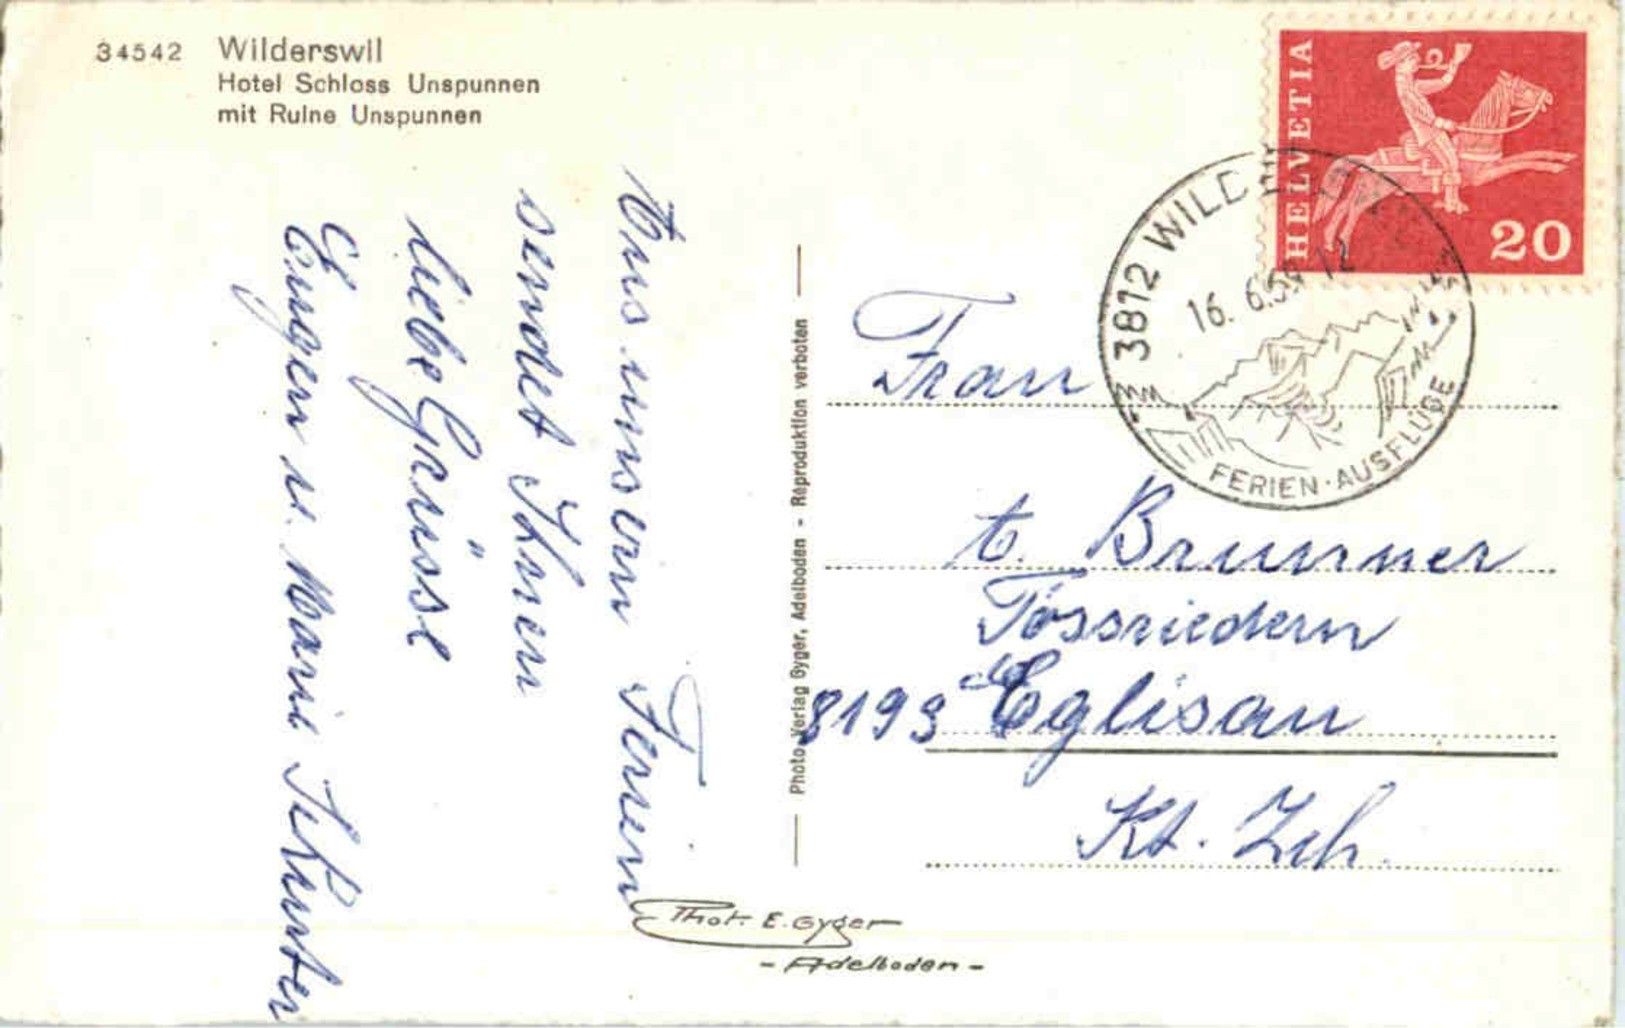 34542 Wilderswil
Hotel Schloss Unspunnen
mit Ruine Unspunnen
Aus unsern Ferien
sendet Ihnen
liebe Grüsse
Eugen u. Marie Schuster
Photo-Verlag Gyger, Adelboden - Reproduktion verboten
HELVETIA
20
3812 WILDERSWIL
16. 6. 12
FERIEN·AUSFLÜGE
Frau
A. Brunner
Tössriedern
8193 Eglisau
Kt. Zch.
Phot. E. Gyger
- Adelboden -